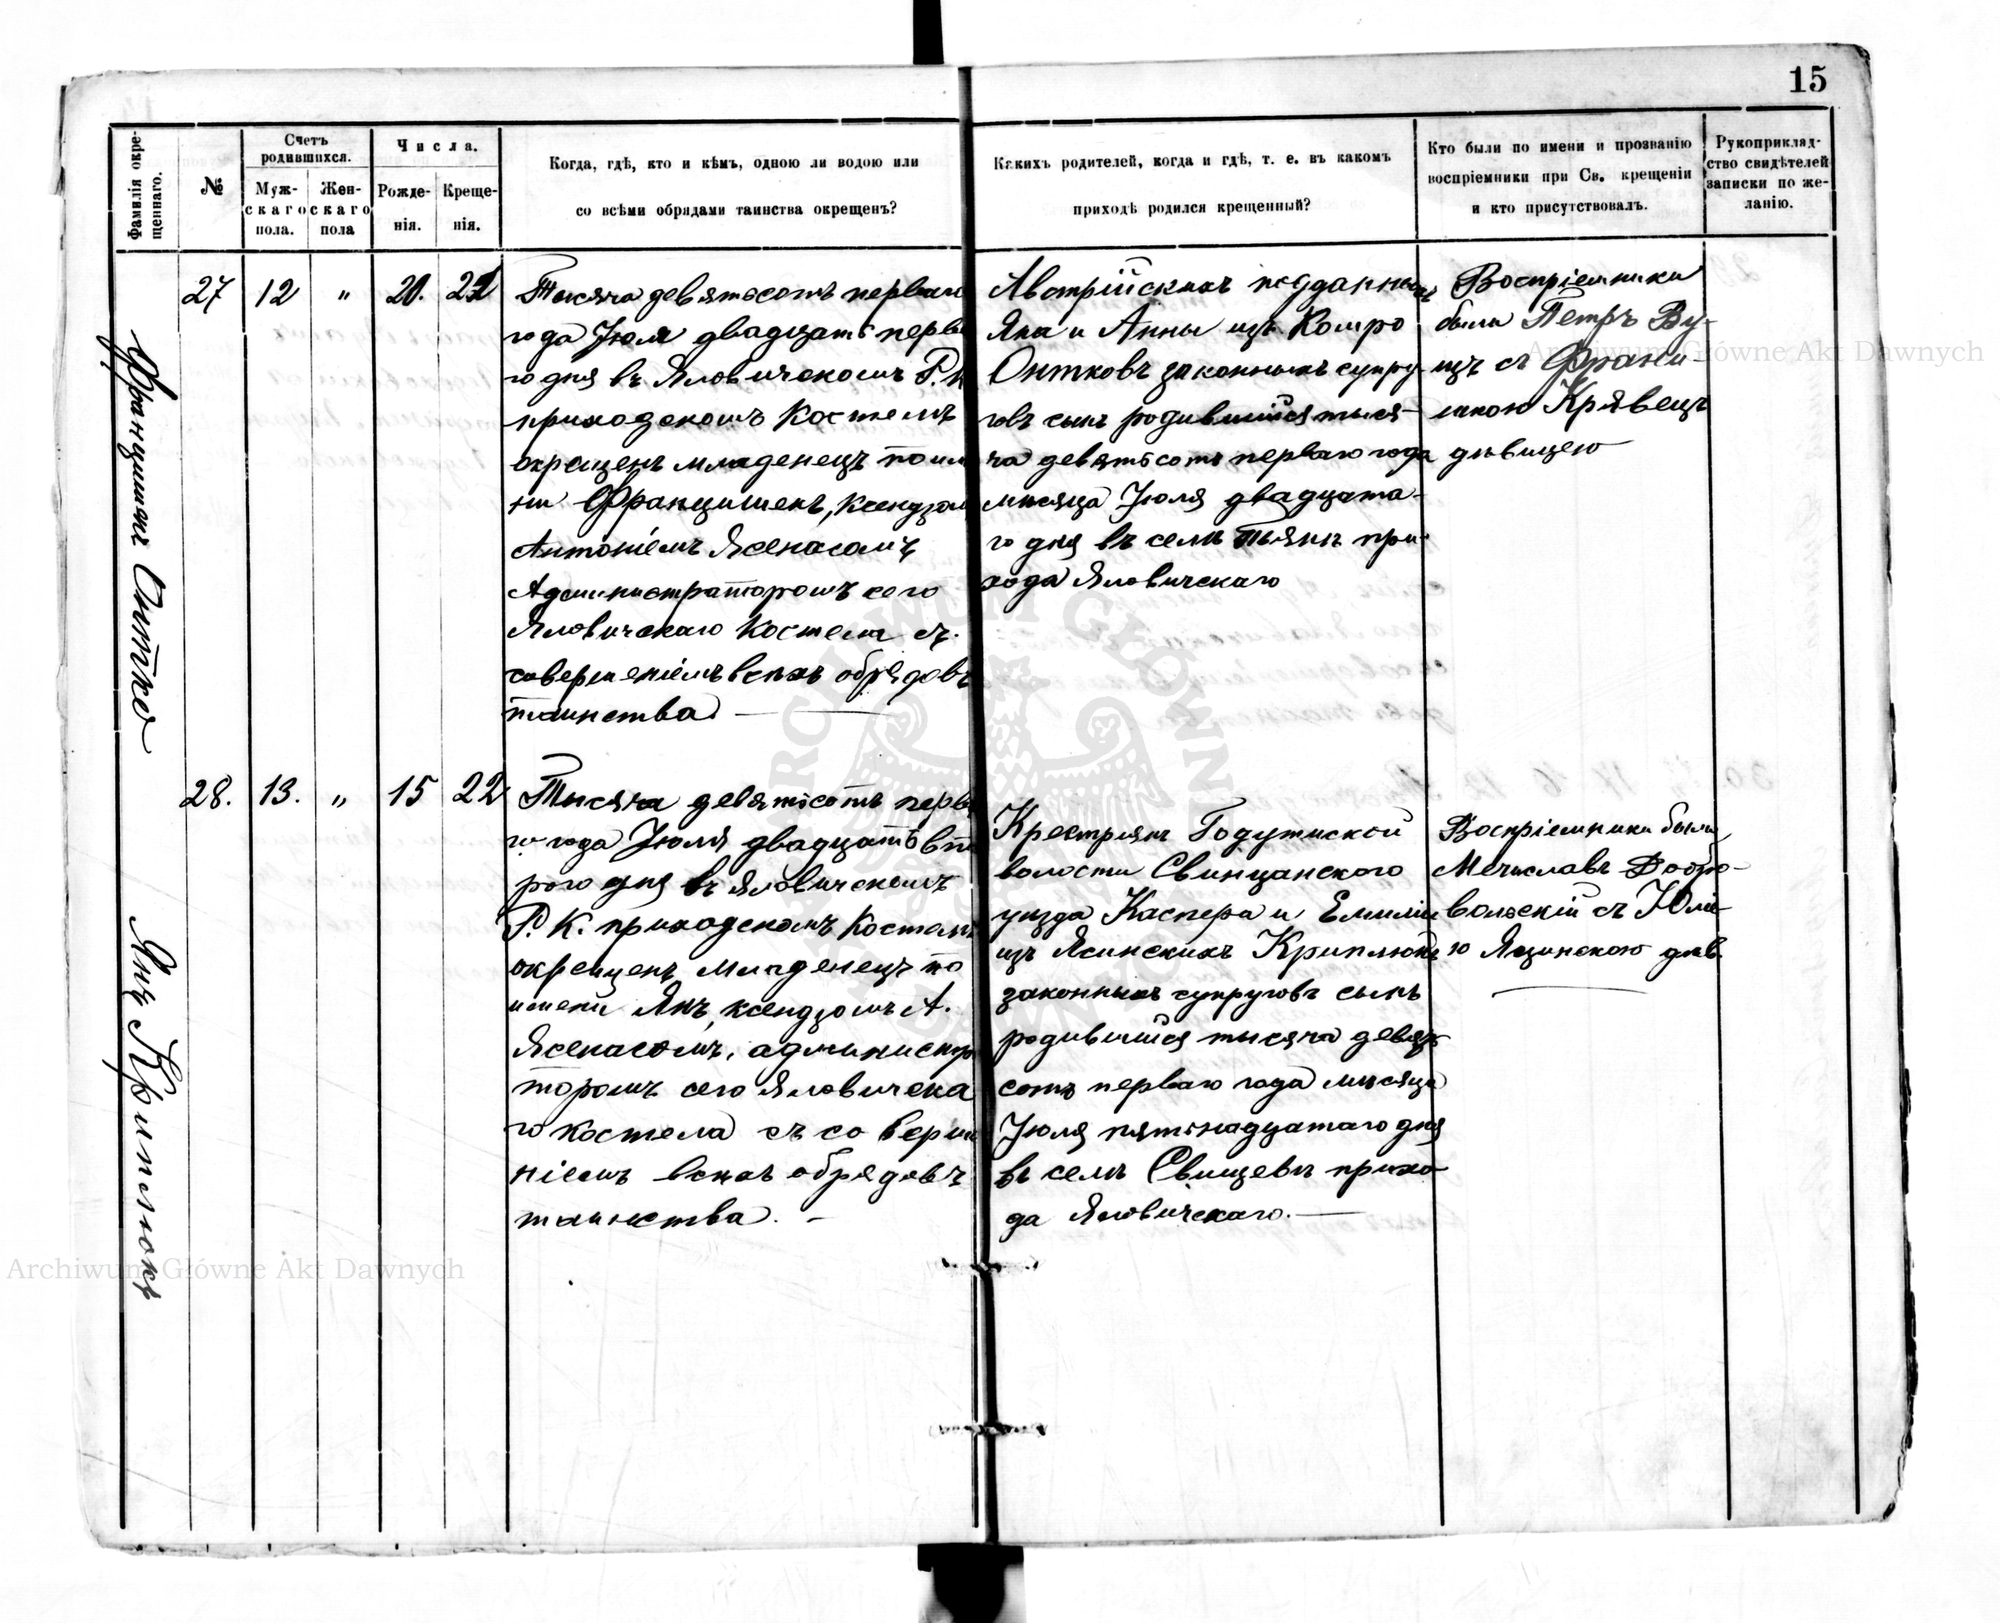 15
Фамилія окре-
щеннаго.
№
Счетъ
родившихся.
Муж-
скаго
пола.
Жен-
скаго
пола
Числа.
Рожде-
нія.
Креще-
нія.
Когда, гдѣ, кто и кѣмъ, одною ли водою или
со всѣми обрядами таинства окрещенъ?
Какихъ родителей, когда и гдѣ, т. е. въ какомъ
приходѣ родился крещенный?
Кто были по имени и прозванію
воспріемники при Св. крещеніи
и кто присутствовалъ.
Рукоприклад-
ство свидѣтелей
записки по же-
ланію.
Францишекъ Онтко
27 12 " 20. 21
Тысяча девятьсотъ перваго
года Іюля двадцать перва
го дня въ Яловичскомъ Р. К
приходскомъ Костелѣ
окрещенъ младенецъ по име
ни Францишекъ, Ксендзомъ
Антоніемъ Ясенасомъ
Администраторомъ сего
Яловичскаго Костела съ
совершеніемъ всѣхъ обрядовъ
таинства.
Австрійскихъ подданныхъ
Яна и Анны изъ Комро
Онтковъ законныхъ супру-
говъ сынъ родившійся тыся-
ча девятьсотъ перваго года
мѣсяца Іюля двадцата-
го дня въ селѣ Пьянѣ при-
хода Яловичскаго
Воспріемники
были Петръ Ву-
цъ съ Франи-
шкою Крявецъ
дѣвицею
Янъ Криплюкъ
28. 13. " 15 22
Тысяча девятьсотъ перва
го года Іюля двадцать вто
рого дня въ Яловичскомъ
Р. К. приходскомъ Костелѣ
окрещенъ младенецъ по
имени Янъ, ксендзомъ А.
Ясенасомъ, администра
торомъ сего Яловичска
го костела съ соверше
ніемъ всѣхъ обрядовъ
таинства.
Крестьянъ Годутиской
волости Свинцянскаго
уѣзда Каспера и Емиліи
изъ Ясинскихъ Криплюкъ
законныхъ супруговъ сынъ
родившійся тысяча девять
сотъ перваго года мѣсяца
Іюля пятьнадцатаго дня
въ селѣ Свищевѣ прихо-
да Яловичскаго.
Воспріемники были
Мечиславъ Добро-
вольскій съ Юлі-
ю Яцинскою дѣв.
Archiwum Główne Akt Dawnych
Archiwum Główne Akt Dawnych
ARCHIWUM GŁÓWNE AKT DAWNYCH